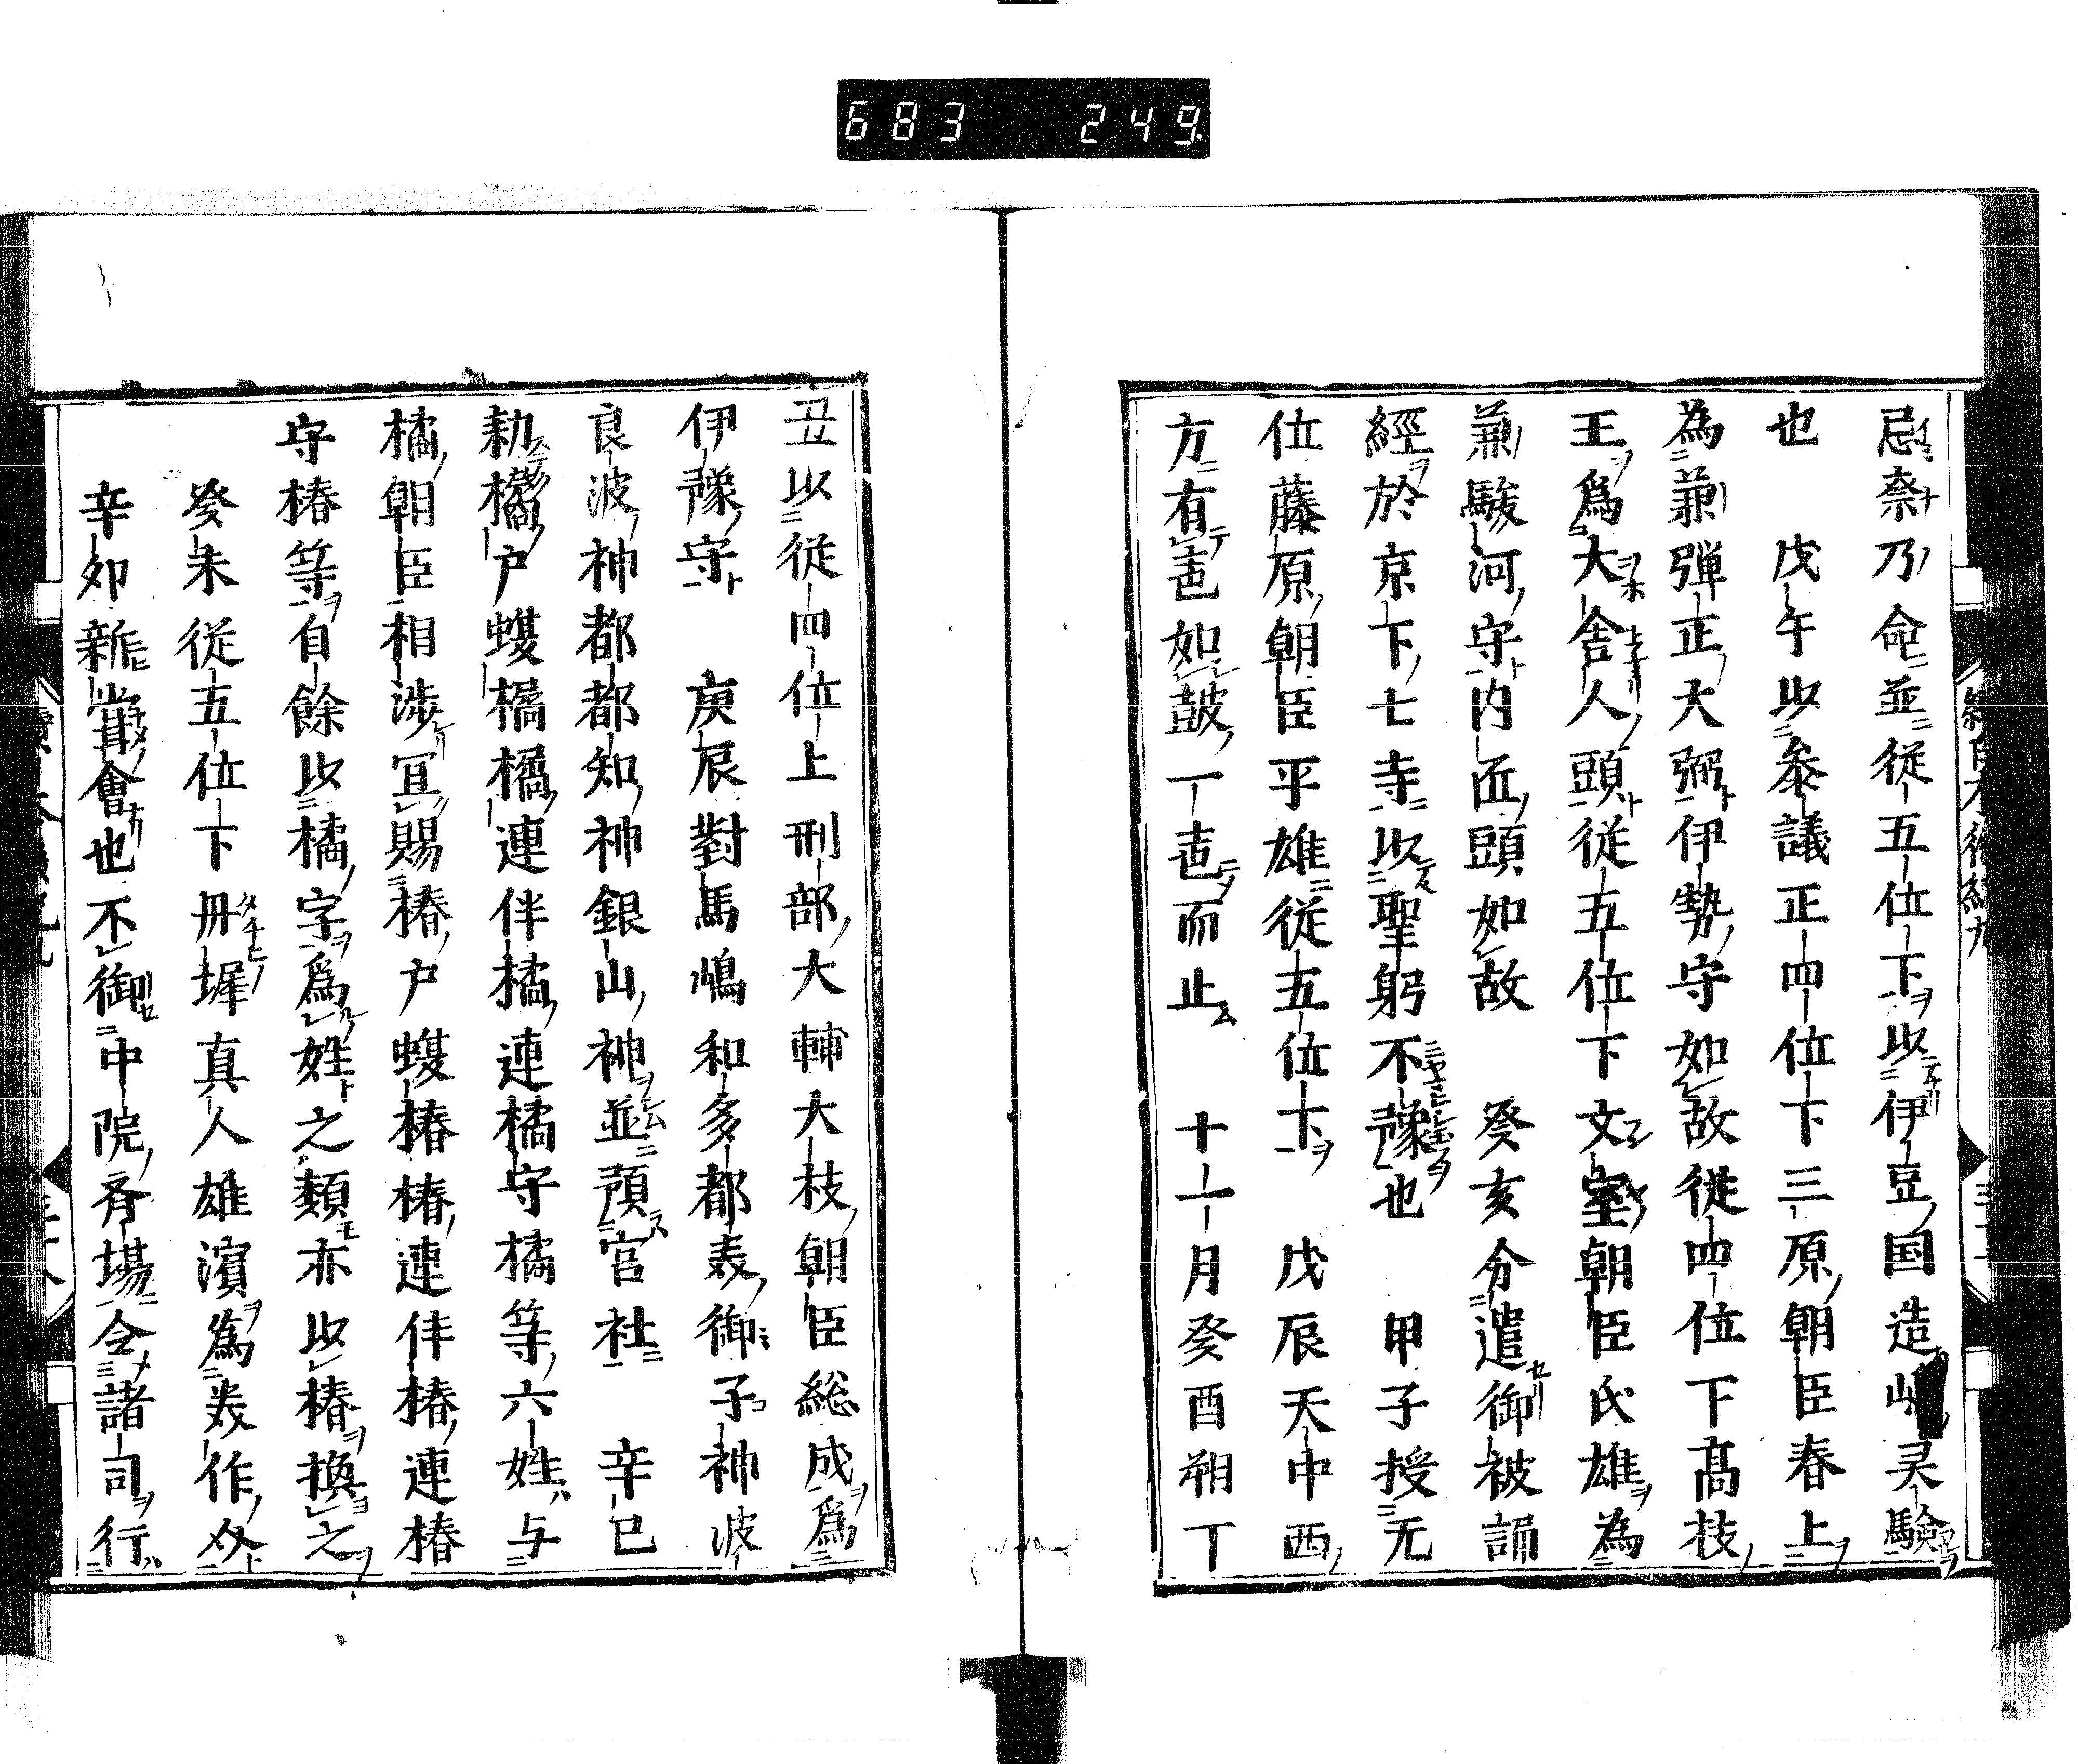 683 249
忌祭乃命並從五位下以伊豆国造 灵驗
也 戊午以叅議正四位下三原朝臣春上
為兼弾正大弼伊勢守如故從四位下髙枝
王爲大舍人頭從五位下文室朝臣氏雄為
兼駿河守内匠頭如故 癸亥分遣御被誦
經於京下七寺以聖躬不豫也 甲子授无
位藤原朝臣平雄從五位下 戊辰天中西
方有声如鼓一声而止 十一月癸酉朔丁
丑以從四位上刑部大輔大枝朝臣総成爲
伊豫守 庚辰對馬嶋和多都美御子神波
良波神都都知神銀山神並預官社 辛巳
勅橘戸蝮橘橘連伴橘連橘守橘等六姓与
橘朝臣相渉冝賜椿戸蝮椿椿連伴椿連椿
守椿等自餘以橘字爲姓之類亦以椿換之
癸未從五位下丹墀真人雄濱為美作介
辛卯新甞會也不御中院斉場令諸司行